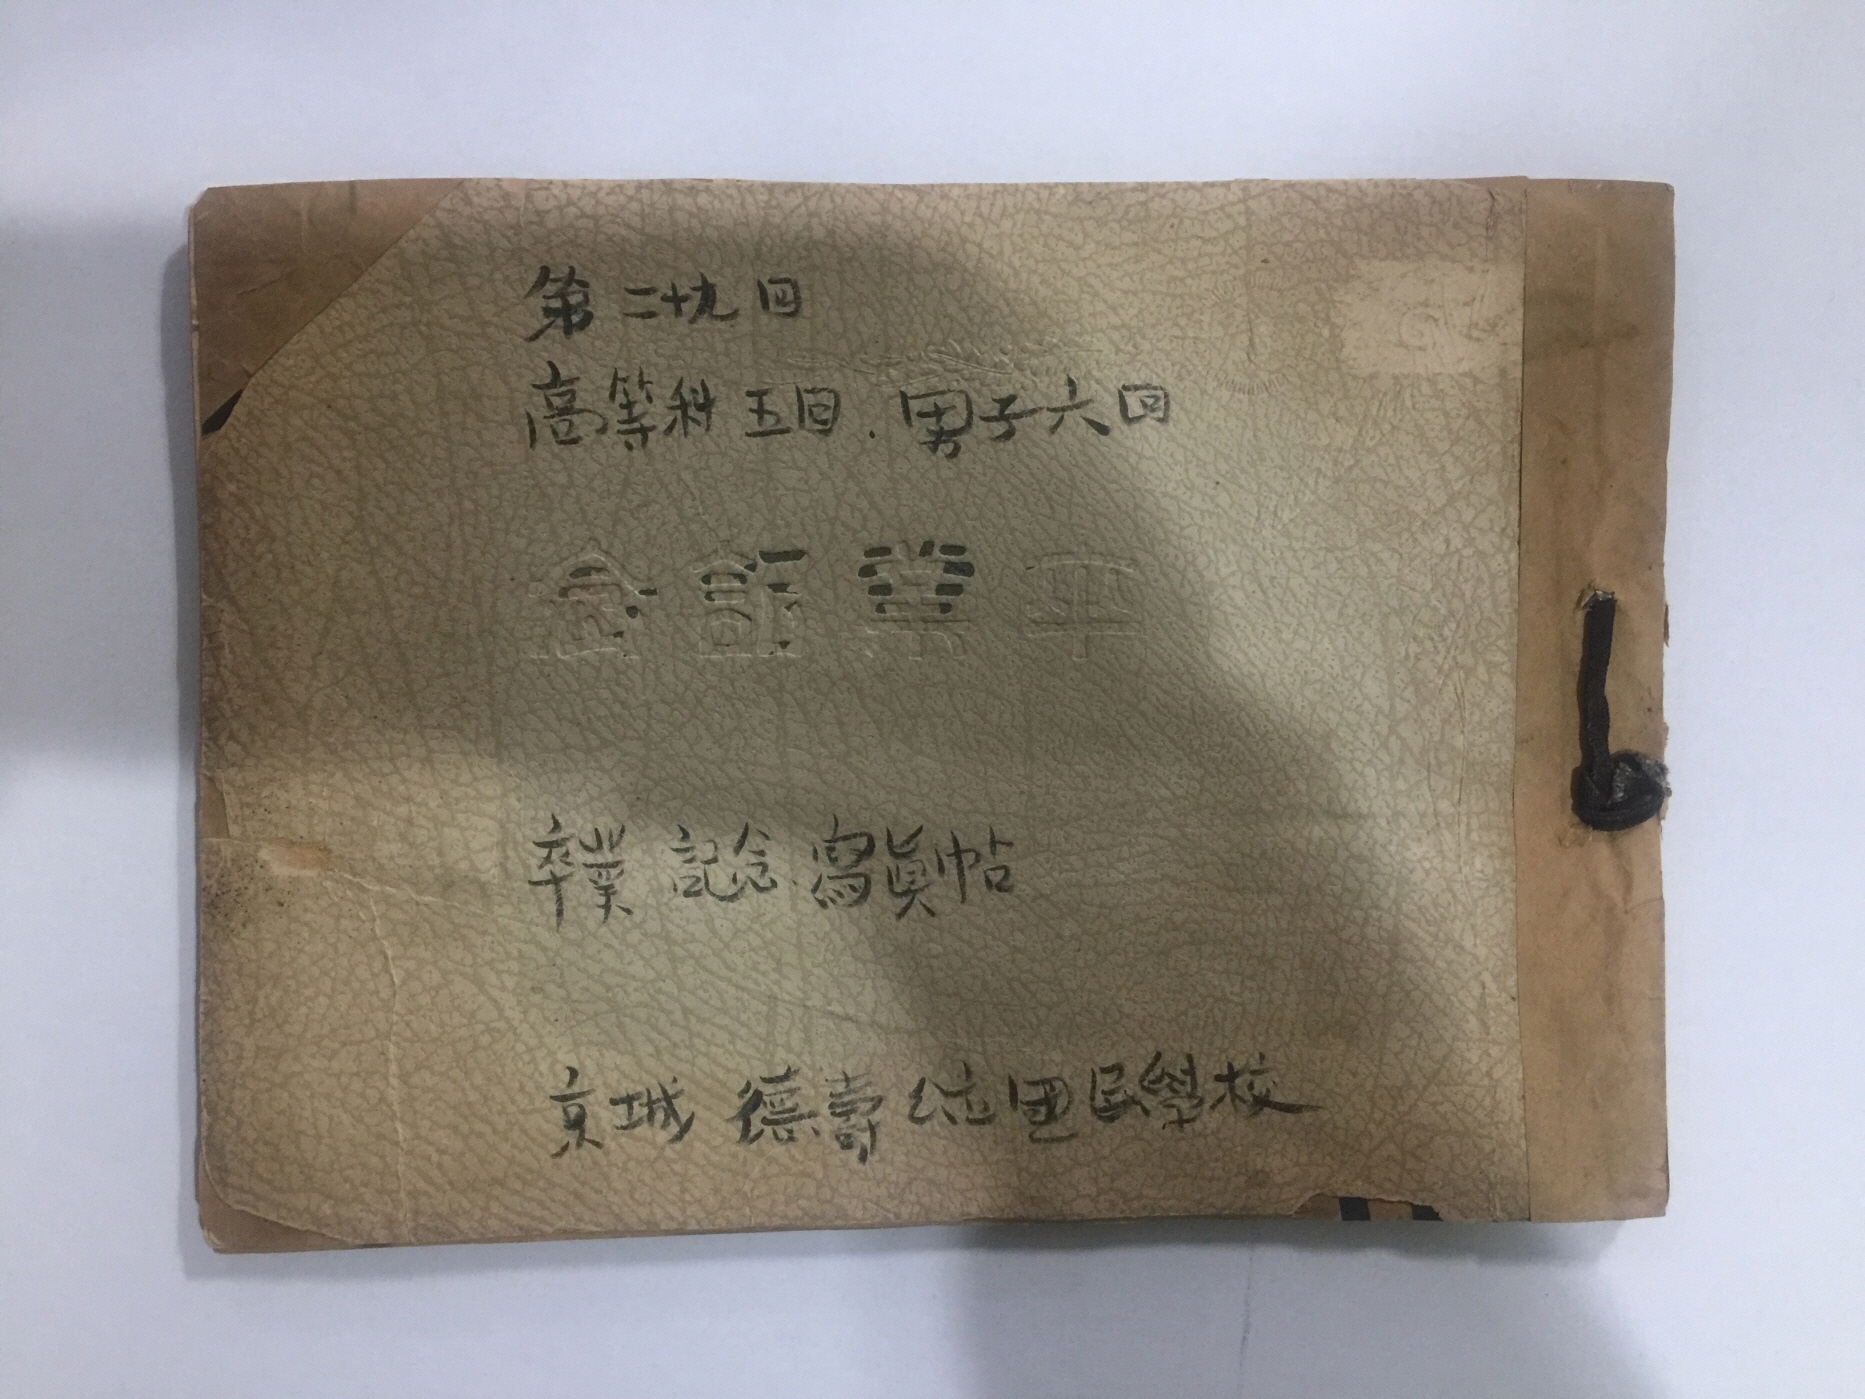 第二十九回
高等科五回.男子六回
念記業卒
卒業 記念 寫眞帖
京城 德壽 公立國民學校